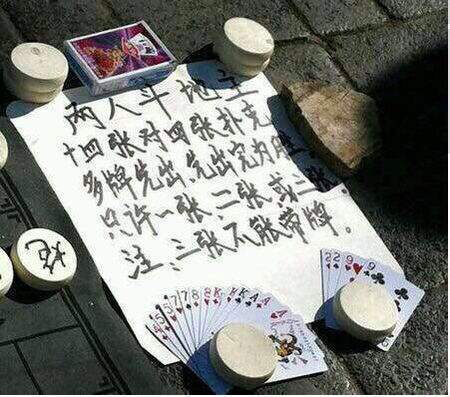 两人斗地主
十四张对四张扑克
多牌先出.先出完为胜.
只许一张.二张或三张.
注:三张不能带牌.
炮
2 2 9 9